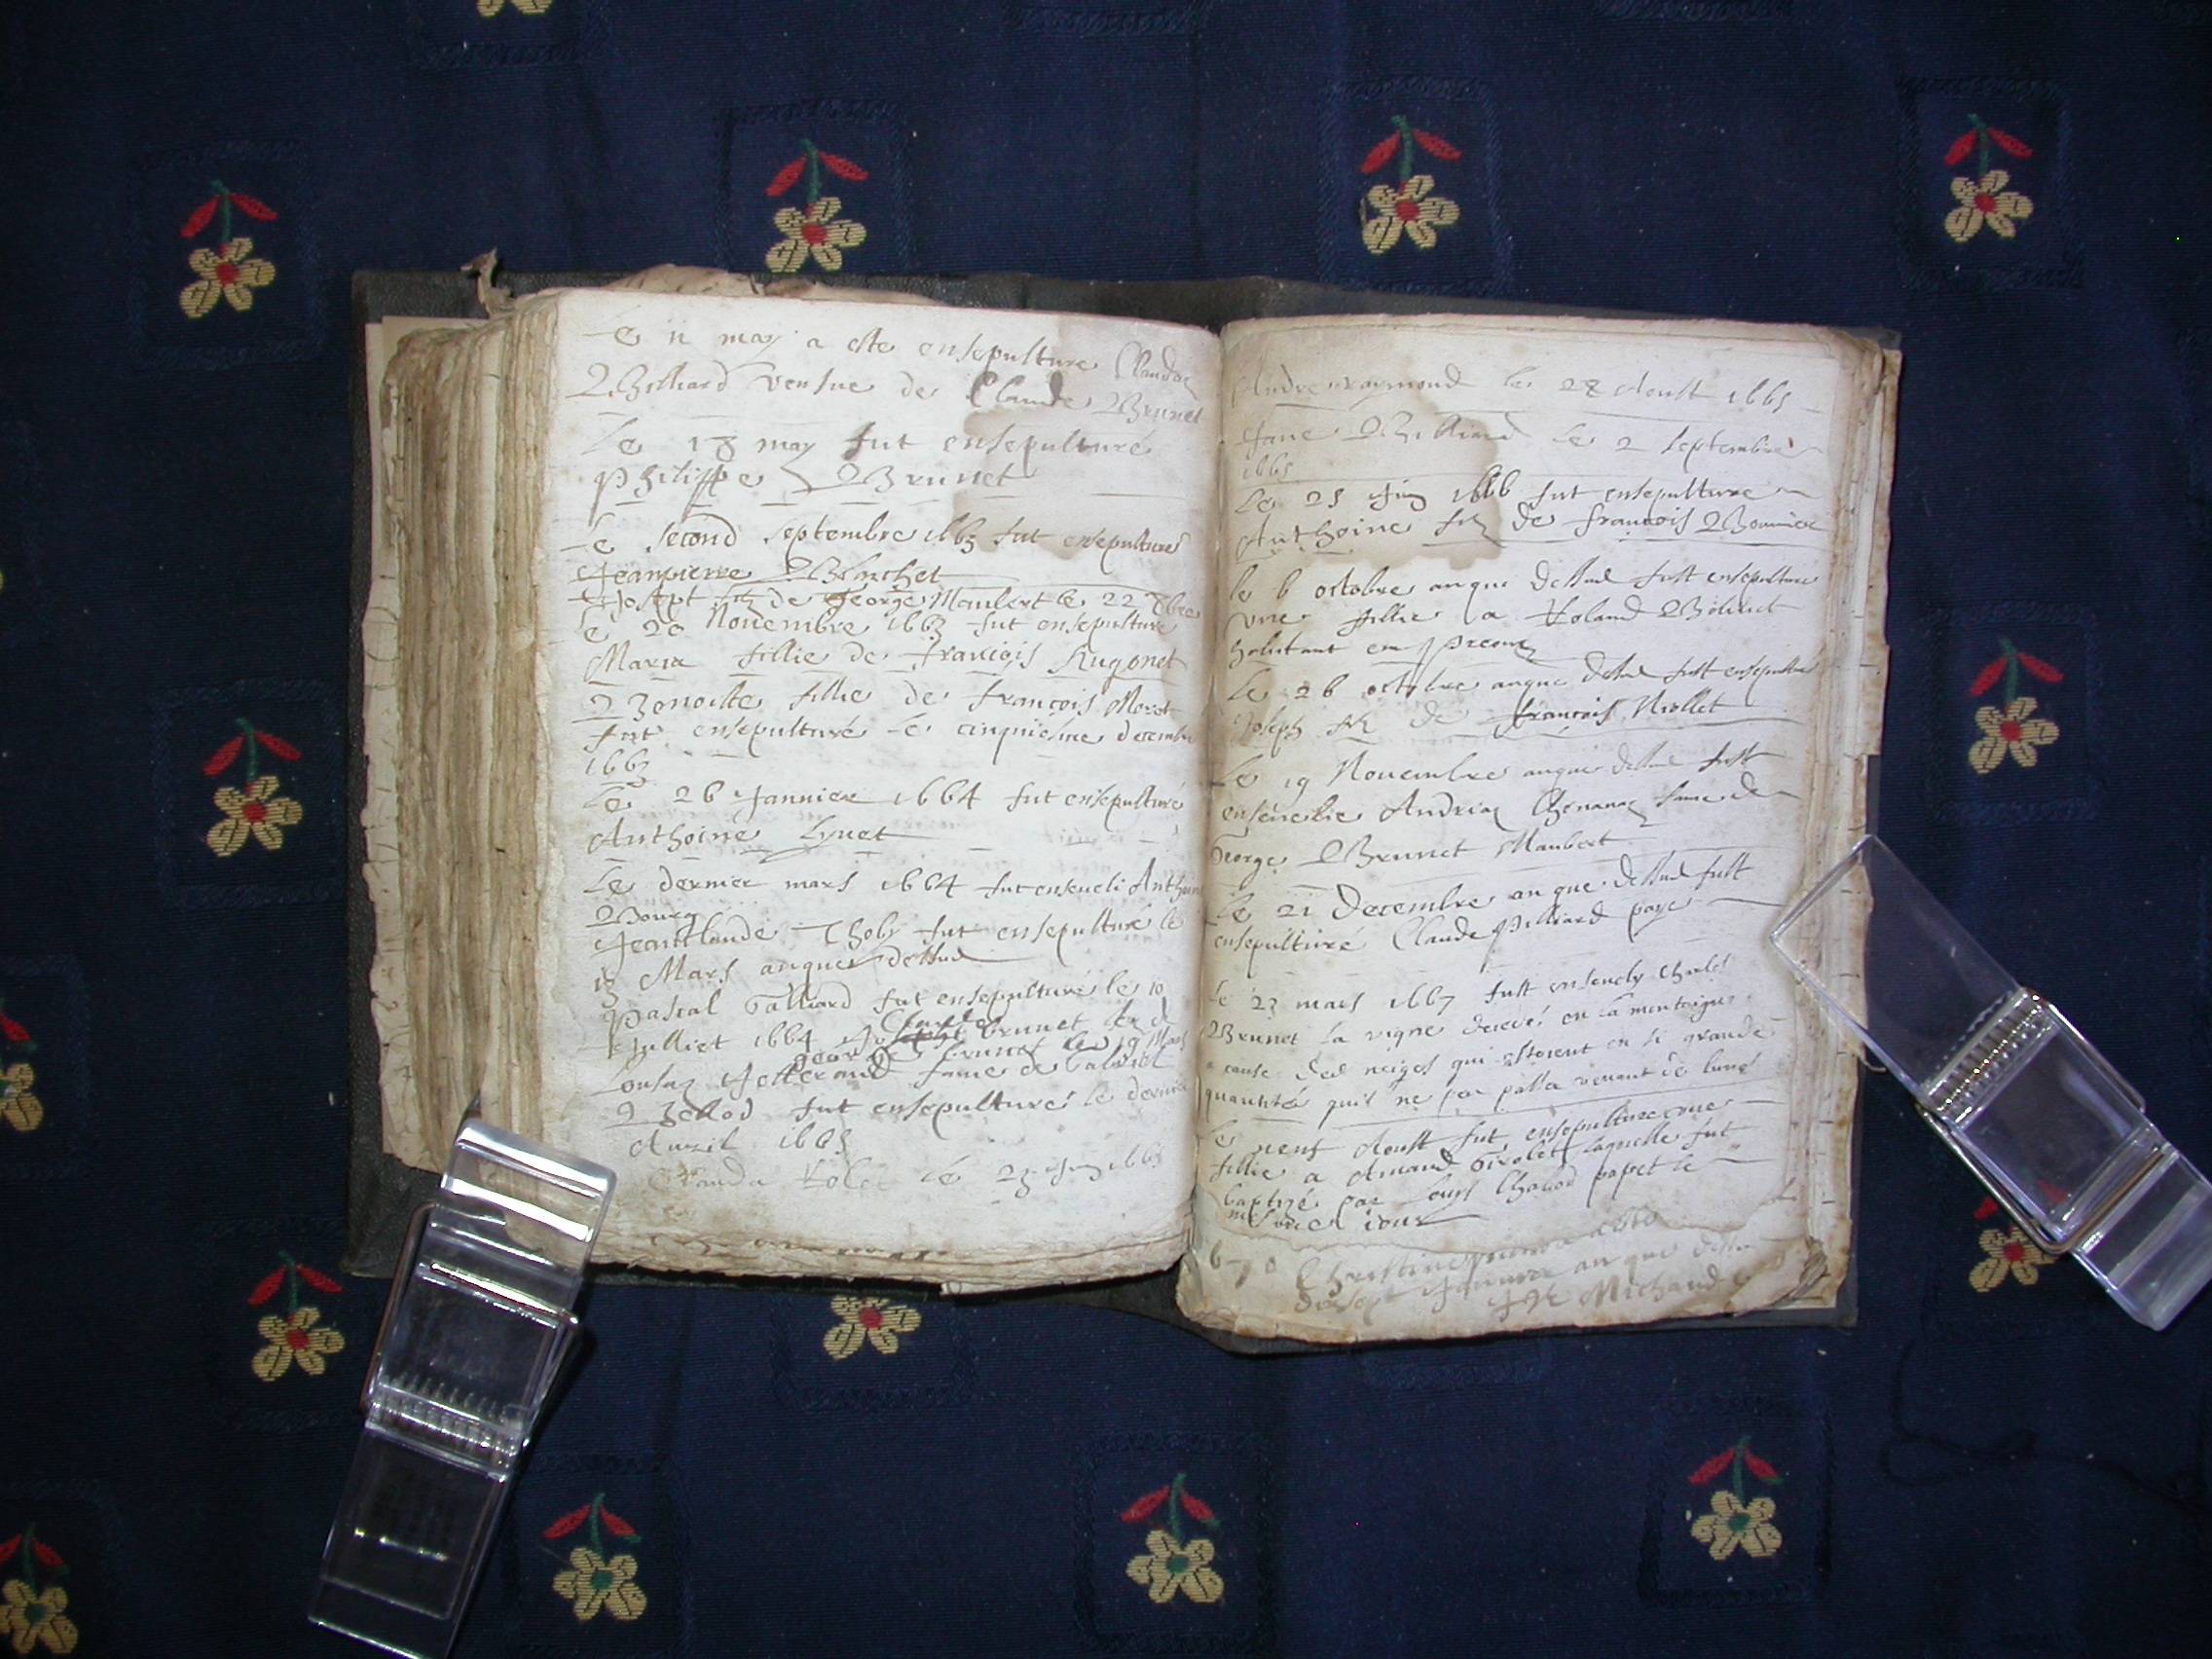 Le 11 may a este ensepulture Claudaz
Billiard vensue de Claude Brunet
Le 18 may fut ensepulturé
Philippe Brunet
Le second septembre 1663 fut ensepulturé
Jeanpierre Blanchet
Josept filz de George Maulert le 22 7bre
Le 20 Nouembre 1663 fut ensepulture
Maria fillie de François Hugonet
Benoiste fillie de François Moret
fut ensepulturé le cinquiesme decembre
1663
Le 26 Januier 1664 fut ensepulturé
Anthoine Lynet
Le dernier mars 1664 fut enseueli Anthoine
Bourg
Jeanclaude Thoby fut ensepulturé le
13 Mars anque dessus
Pascal Galliard fut ensepulturé le 10
Julliet 1664 Charles brunet
george brunet le 19 Mars
Lousaz Jotterand fame de Gabriel
fut ensepulturé le dernier
Auril 1665
Clauda Rolet le 23 Juin 1665
Andre raymond le 28 Aoust 1665
Jane Billiard Le 2 septembre
1665
Le 25 Juin 1666 fut ensepulture
Anthoine filz de françois Bonnier
le 6 octobre anque dessus fust ensepulture
vne fillie a Roland
habitant en
Le 26 octobre anque dessus fust ensepulturé
Joseph filz de françois Niollet
Le 19 Nouembre anque dessus fust
enseuelie Andriaz fame de
George Brunet Maubert
Le 21 Decembre an que dessus fust
ensepulturé Claude Pilliard paye
Le 23 mars 1667 fust enseuely Charles
Brunet la vigne decedé en la montaigne
a cause des neiges qui estoient en si grande
quantité quil ne peu passer venant de
Le neuf Aoust fut ensepulture vne
fillie a Amand Girolet laquelle fut
baptizé par Louys Chabod papet le
mesme iour
1670 Christine
Januier an que dessus
Michaud